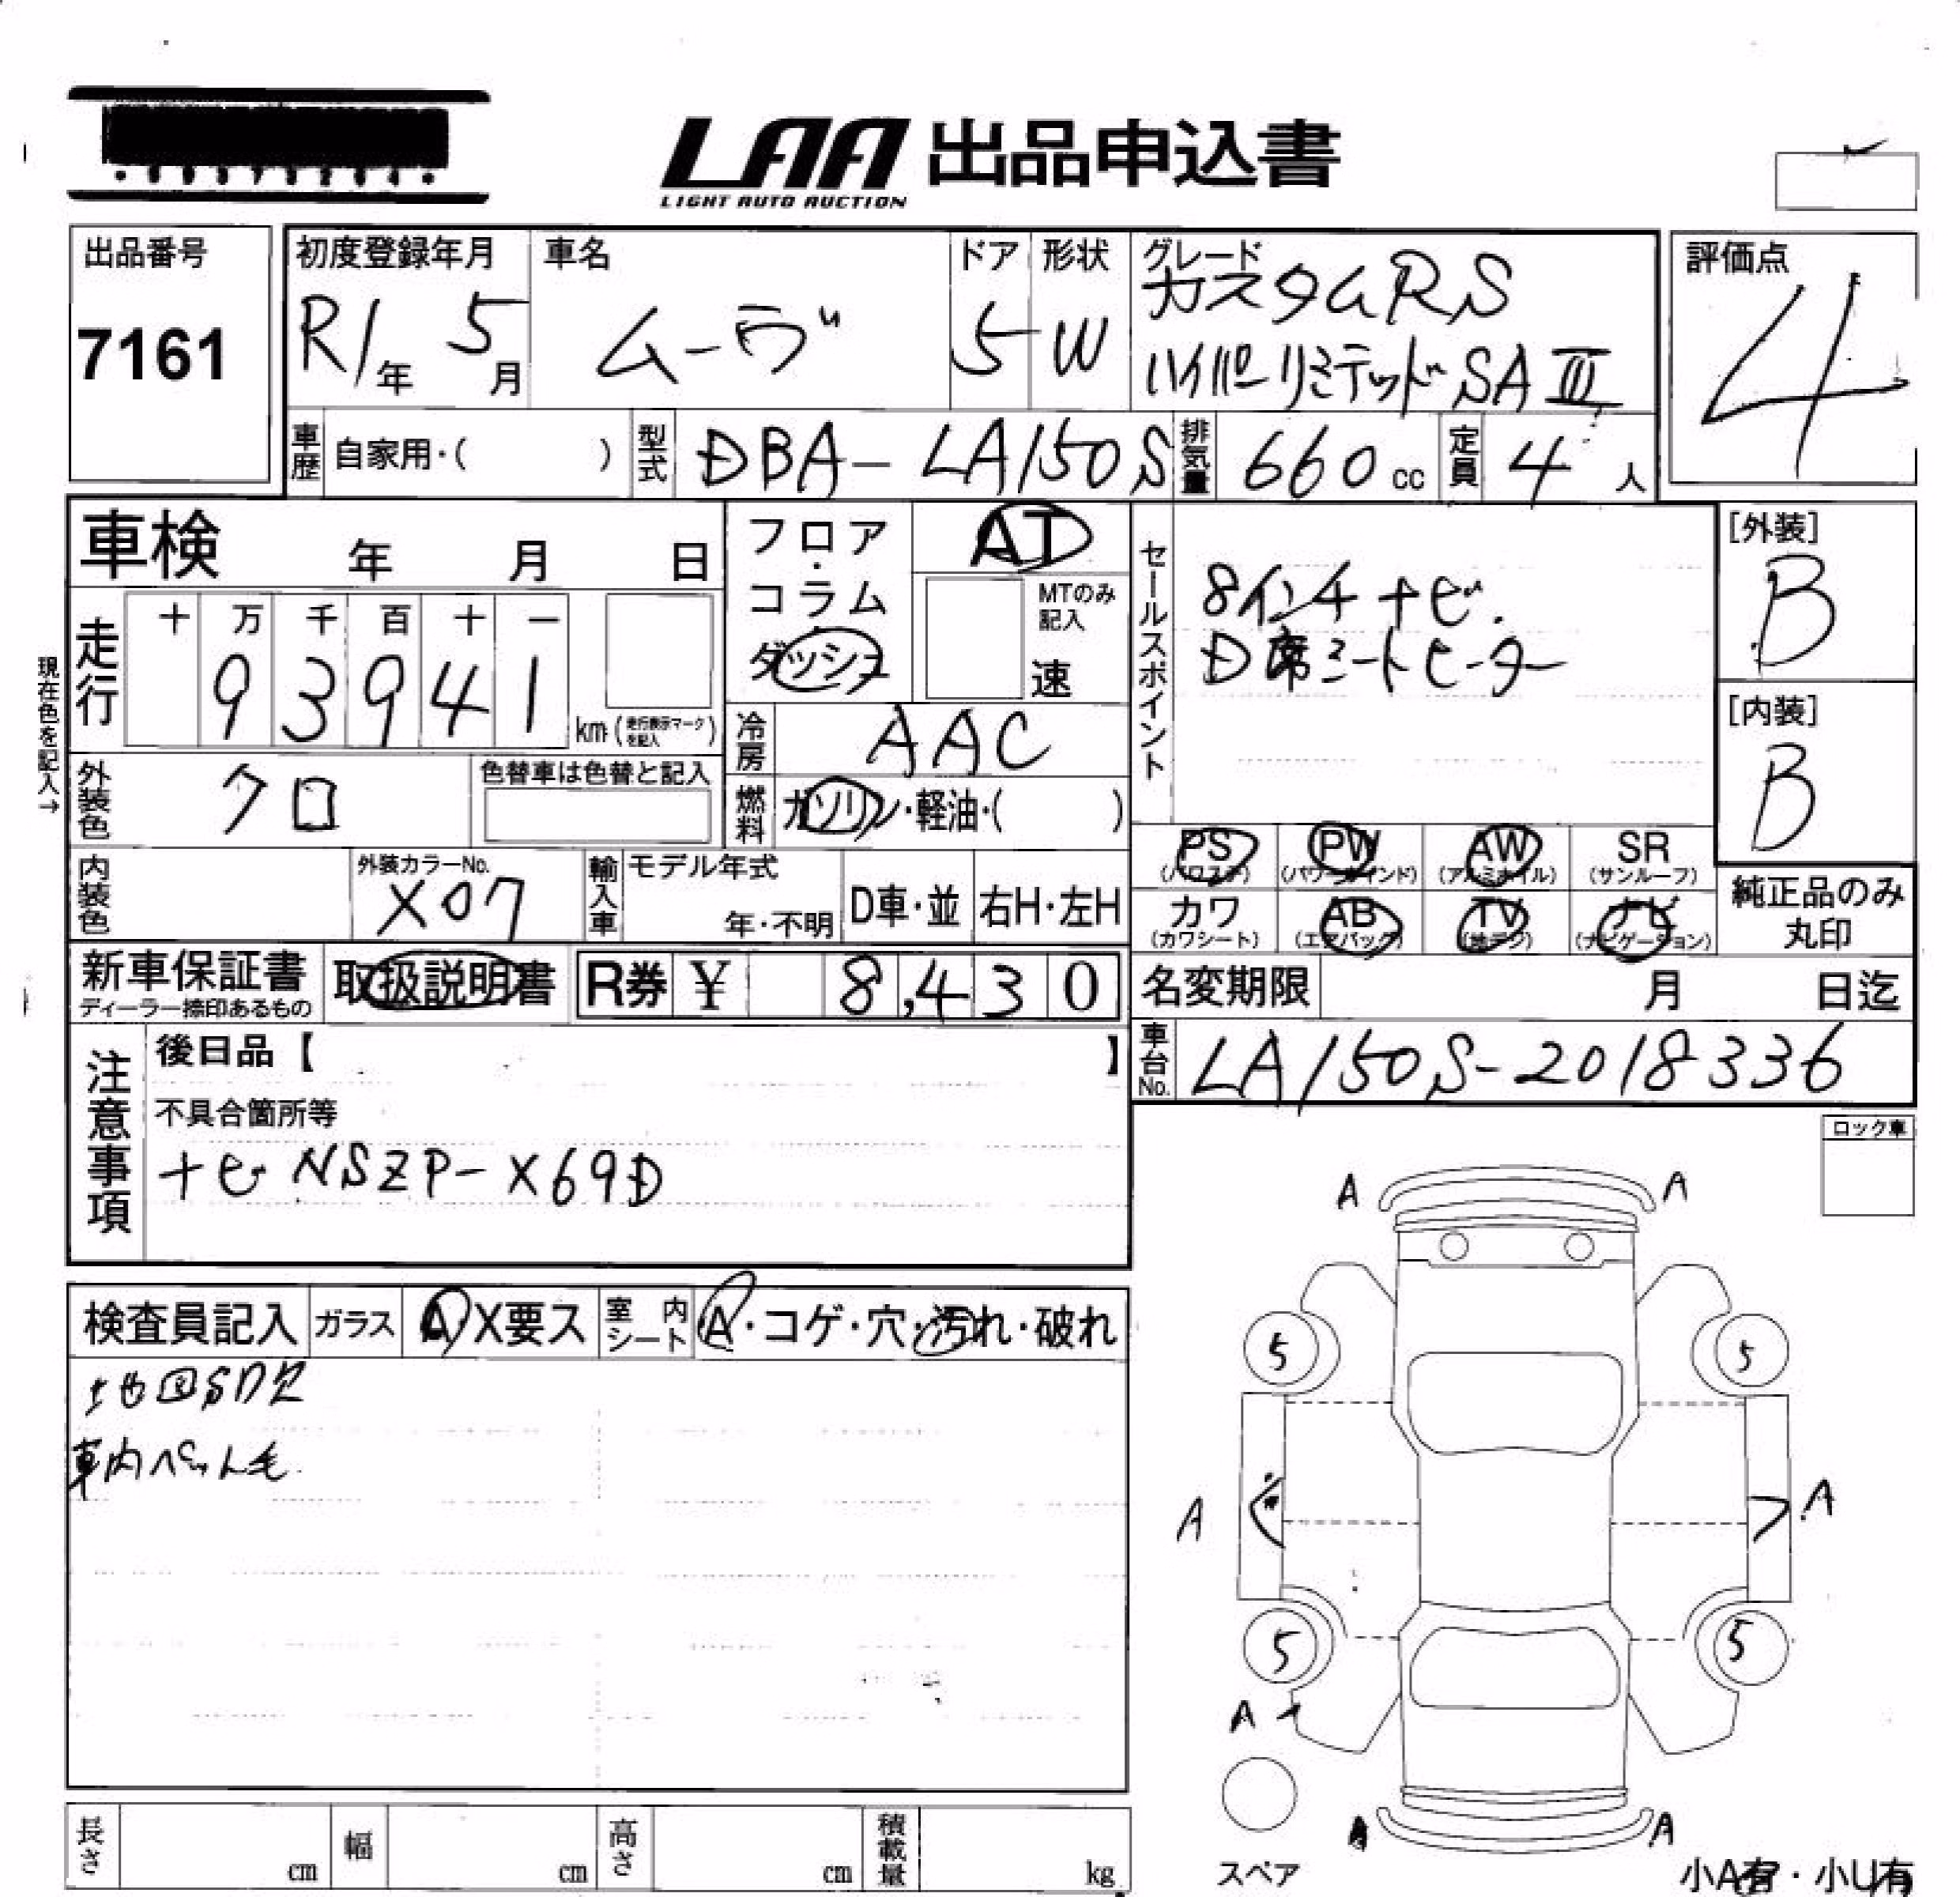 LAA 出品申込書
LIGHT AUTO AUCTION
出品番号
7161
初度登録年月
R1年 5月
車名
ムーヴ
ドア
5
形状
W
グレード
カスタムRS
ハイパーリミテッドSAⅢ
評価点
4
車歴 自家用・( )
型式 DBA-LA150S
排気量 660 cc
定員 4 人
車検 年 月 日
フロア・コラム・ダッシュ
AT
MTのみ記入
速
セールスポイント
8インチナビ.
D席シートヒーター
[外装]
B
[内装]
B
現在色を記入→
走行
十 万 千 百 十 一
9 3 9 4 1
km (走行表示マークを記入)
冷房 AAC
外装色 クロ
色替車は色替と記入
燃料 ガソリン・軽油・( )
PS (パワステ)
PW (パワーウインド)
AW (アルミホイル)
SR (サンルーフ)
カワ (カワシート)
AB (エアバック)
TV (地デジ)
ナビ (ナビゲーション)
純正品のみ
丸印
内装色
外装カラーNo.
X07
輸入車
モデル年式
年・不明
D車・並
右H・左H
新車保証書
ディーラー捺印あるもの
取扱説明書
R券 ¥ 8,430
名変期限 月 日迄
車台No. LA150S-2018336
注意事項
後日品【 】
不具合箇所等
ナビ NSZP-X69D
ロック車
検査員記入
ガラス A X要ス
室内シート A・コゲ・穴・汚れ・破れ
地図SD欠
車内ペット毛
A A
5 5
A A
5 5
A
A A
スペア
小A有・小U有
長さ cm
幅 cm
高さ cm
積載量 kg